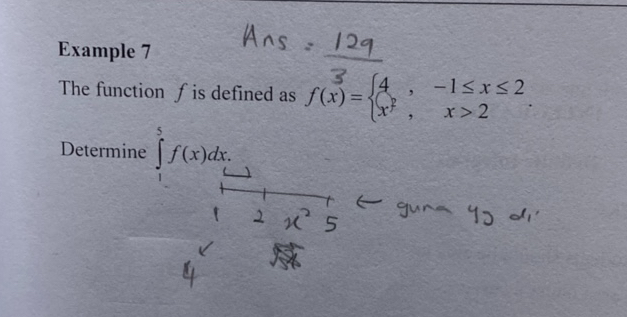 Ans = 129/3
Example 7
The function f is defined as f(x) = { 4 , -1 ≤ x ≤ 2
x² , x > 2 .
Determine ∫₁⁵ f(x)dx.
1 2 x² 5 ← guna yg di
4